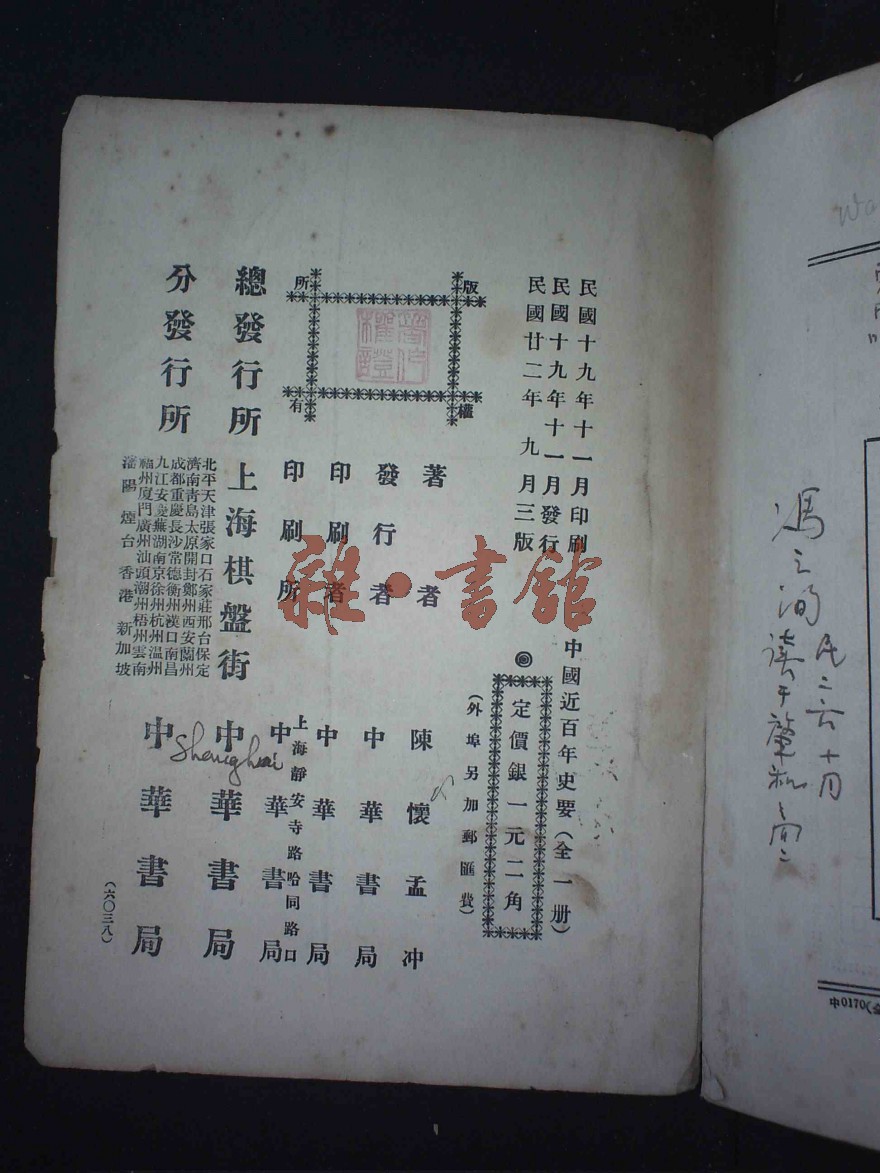 民國十九年十一月印刷
民國十九年十一月發行
民國廿二年九月三版
中國近百年史要(全一册)
◎
定價銀一元二角
(外埠另加郵匯費)
版權所有
著者 陳懷孟冲
發行者 中華書局
印刷者 中華書局
上海靜安寺路哈同路口
印刷所 中華書局
總發行所 上海棋盤街 中華書局
Shanghai
分發行所
北平天津張家口石家莊邢台保定
濟南青島太原開封鄭州西安蘭州
成都重慶長沙常德衡州漢口南昌
九江安慶蕪湖南京徐州杭州溫州
福州廈門廣州汕頭潮州梧州雲南
瀋陽煙台香港新加坡
中華書局
(六〇三八)
雜·書館
民二六十月
中0170(